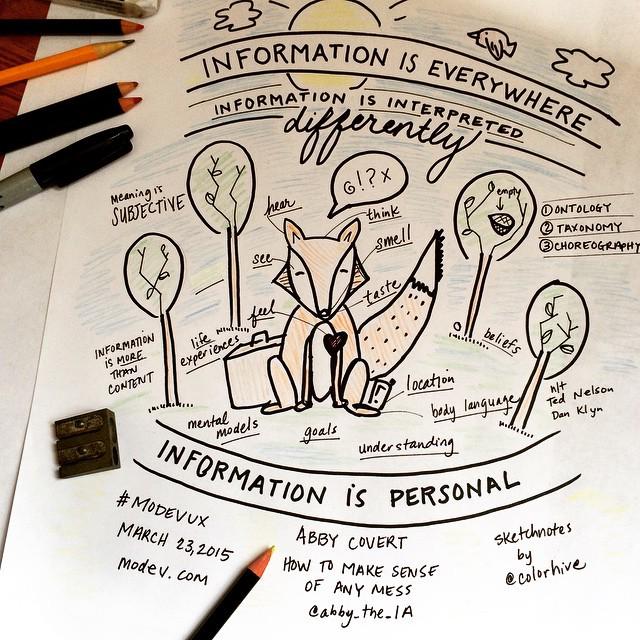 INFORMATION IS EVERYWHERE
INFORMATION IS INTERPRETED
differently
@!?x
Meaning is
SUBJECTIVE
hear
think
smell
see
taste
feel
empty
① ONTOLOGY
② TAXONOMY
③ CHOREOGRAPHY
INFORMATION
IS MORE
THAN
CONTENT
life
experiences
beliefs
location
body language
h/t
Ted Nelson
Dan Klyn
mental
models
goals
understanding
INFORMATION IS PERSONAL
#MODEVUX
MARCH 23, 2015
modev.com
ABBY COVERT
HOW TO MAKE SENSE
OF ANY MESS
@abby_the_IA
sketchnotes
by
@colorhive